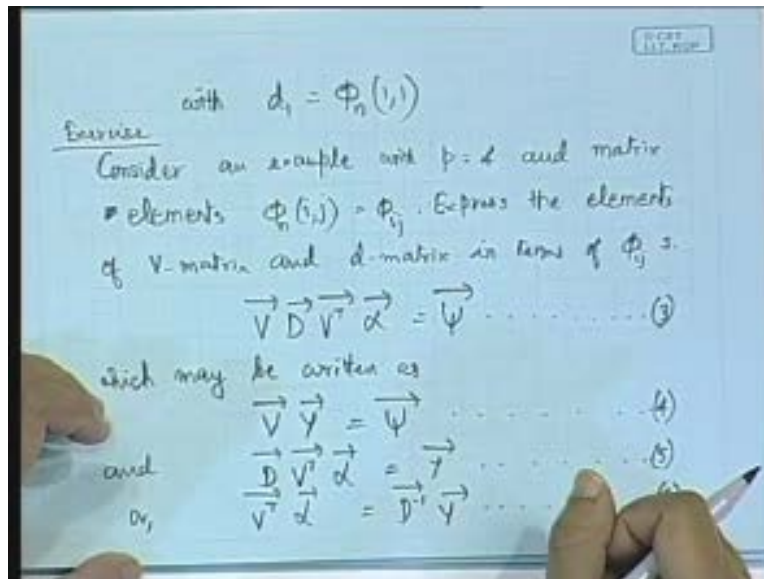 with d₁ = Φₙ(1,1)
Exercise
Consider an example with p = 4 and matrix
elements Φₙ(i,j) = Φᵢⱼ. Express the elements
of V-matrix and d-matrix in terms of Φᵢⱼ s.
V D Vᵀ α = Ψ .......... (3)
which may be written as
V Y = Ψ ........ (4)
and D Vᵀ α = Y ....... (5)
or, Vᵀ α = D⁻¹ Y ....